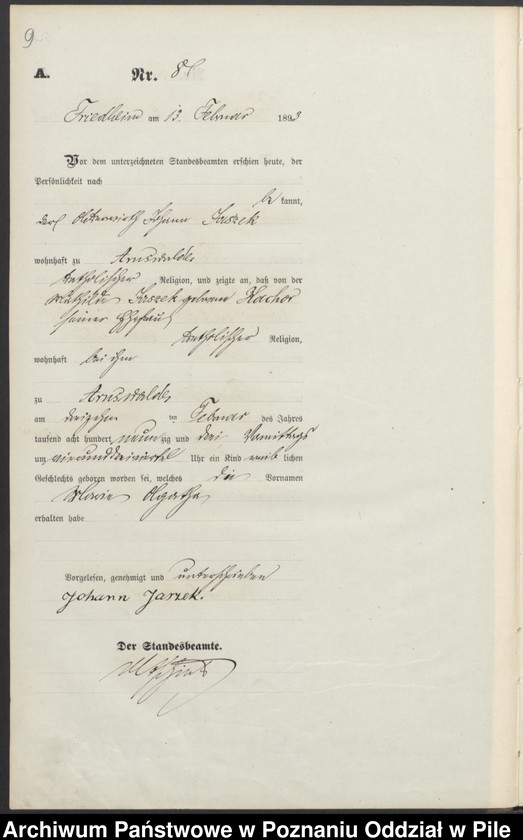 9
A. Nr. 8
Friedheim am 13. Februar 1893
Vor dem unterzeichneten Standesbeamten erschien heute, der
Persönlichkeit nach
be kannt,
der Johann Jarzek
wohnhaft zu Arnswalde
katholischer Religion, und zeigte an, daß von der
Mathilde Jarzek geborene Kachor
seiner Ehefrau
katholischer Religion,
wohnhaft bei ihm
zu Arnswalde
am dreizehn ten Februar des Jahres
tausend acht hundert neun zig und drei Vormittags
um vierunddreiviertel Uhr ein Kind weib lichen
Geschlechts geboren worden sei, welches die Vornamen
Marie Agathe
erhalten habe
Vorgelesen, genehmigt und unterschrieben
Johann Jarzek.
Der Standesbeamte.
Archiwum Państwowe w Poznaniu Oddział w Pile